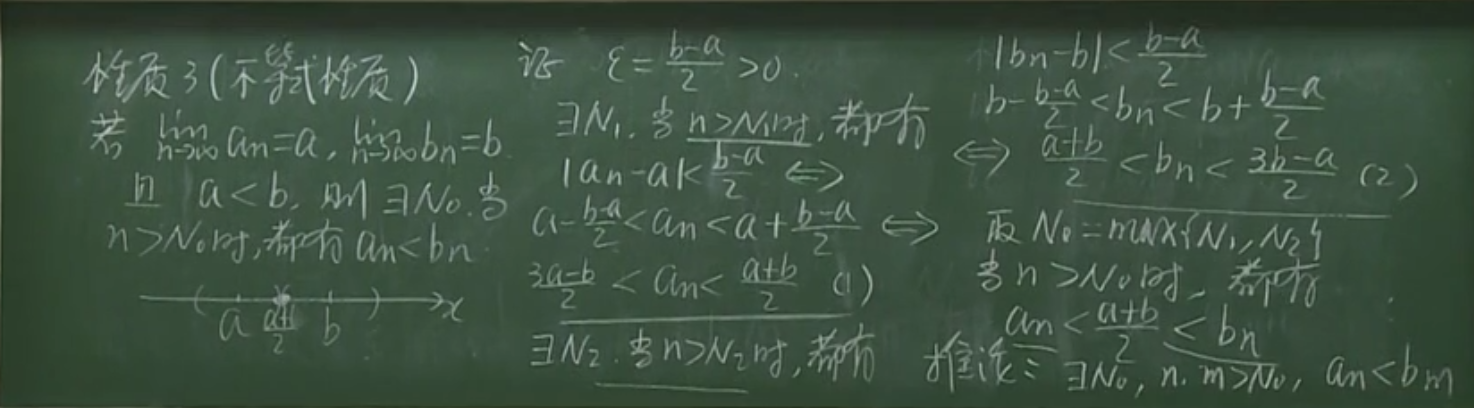 性质3(不等式性质)
若 lim_{n→∞} an=a, lim_{n→∞} bn=b
且 a<b, 则 ∃N0. 当
n>N0时, 都有 an<bn.
( a (a+b)/2 b ) x
证 ε=(b-a)/2 >0.
∃N1. 当n>N1时, 都有
|an-a|<(b-a)/2 ⟺
a-(b-a)/2<an<a+(b-a)/2 ⟺
(3a-b)/2 < an < (a+b)/2 (1)
∃N2. 当n>N2时, 都有
|bn-b|<(b-a)/2
b-(b-a)/2<bn<b+(b-a)/2
⟺ (a+b)/2 <bn< (3b-a)/2 (2)
取 N0=max{N1,N2}
当n>N0时, 都有
an<(a+b)/2<bn
推论: ∃N0, n.m>N0, an<bm